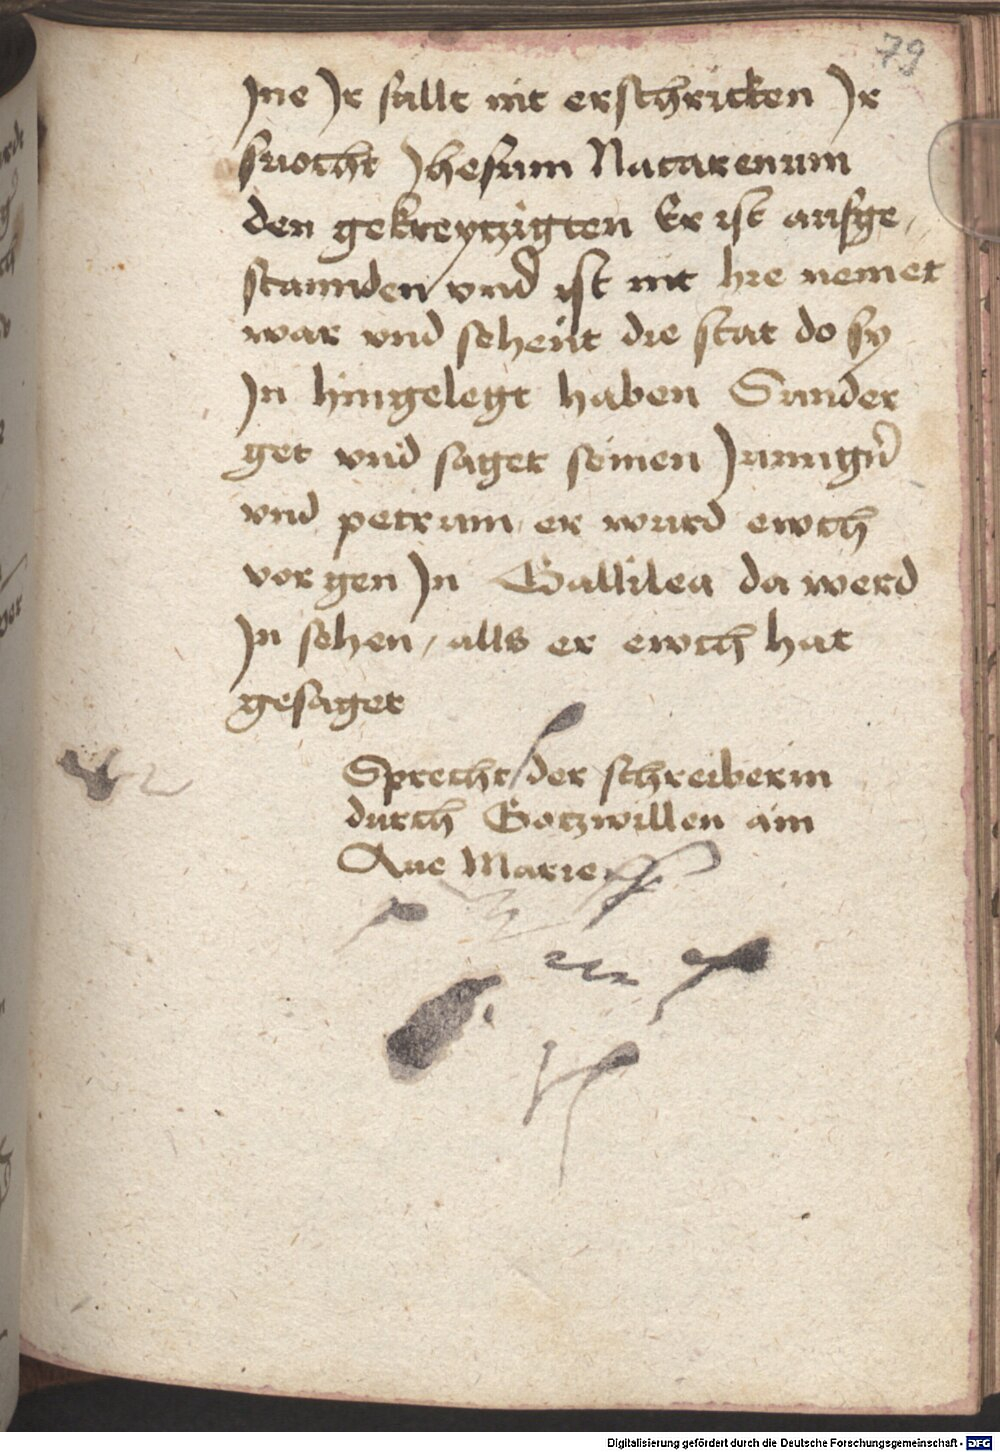 79
Jne Jr sullt nit erschricken Jr
suocht Jhesum Nacarenum
den gekreytzigten Er ist aufge,
stannden vnd ist nit hie nemet
war vnd sehent die stat do sy
Jn hingelegt haben Sunder
get vnd saget seinen Junngrn
vnd petrum er wurd ewch
vor gen Jn Gallilea da werd
Jn sehen, alls er ewch hat
gesaget
Sprecht der schreiberin
durch Gotzwillen ain
Aue Marie
Digitalisierung gefördert durch die Deutsche Forschungsgemeinschaft - DFG